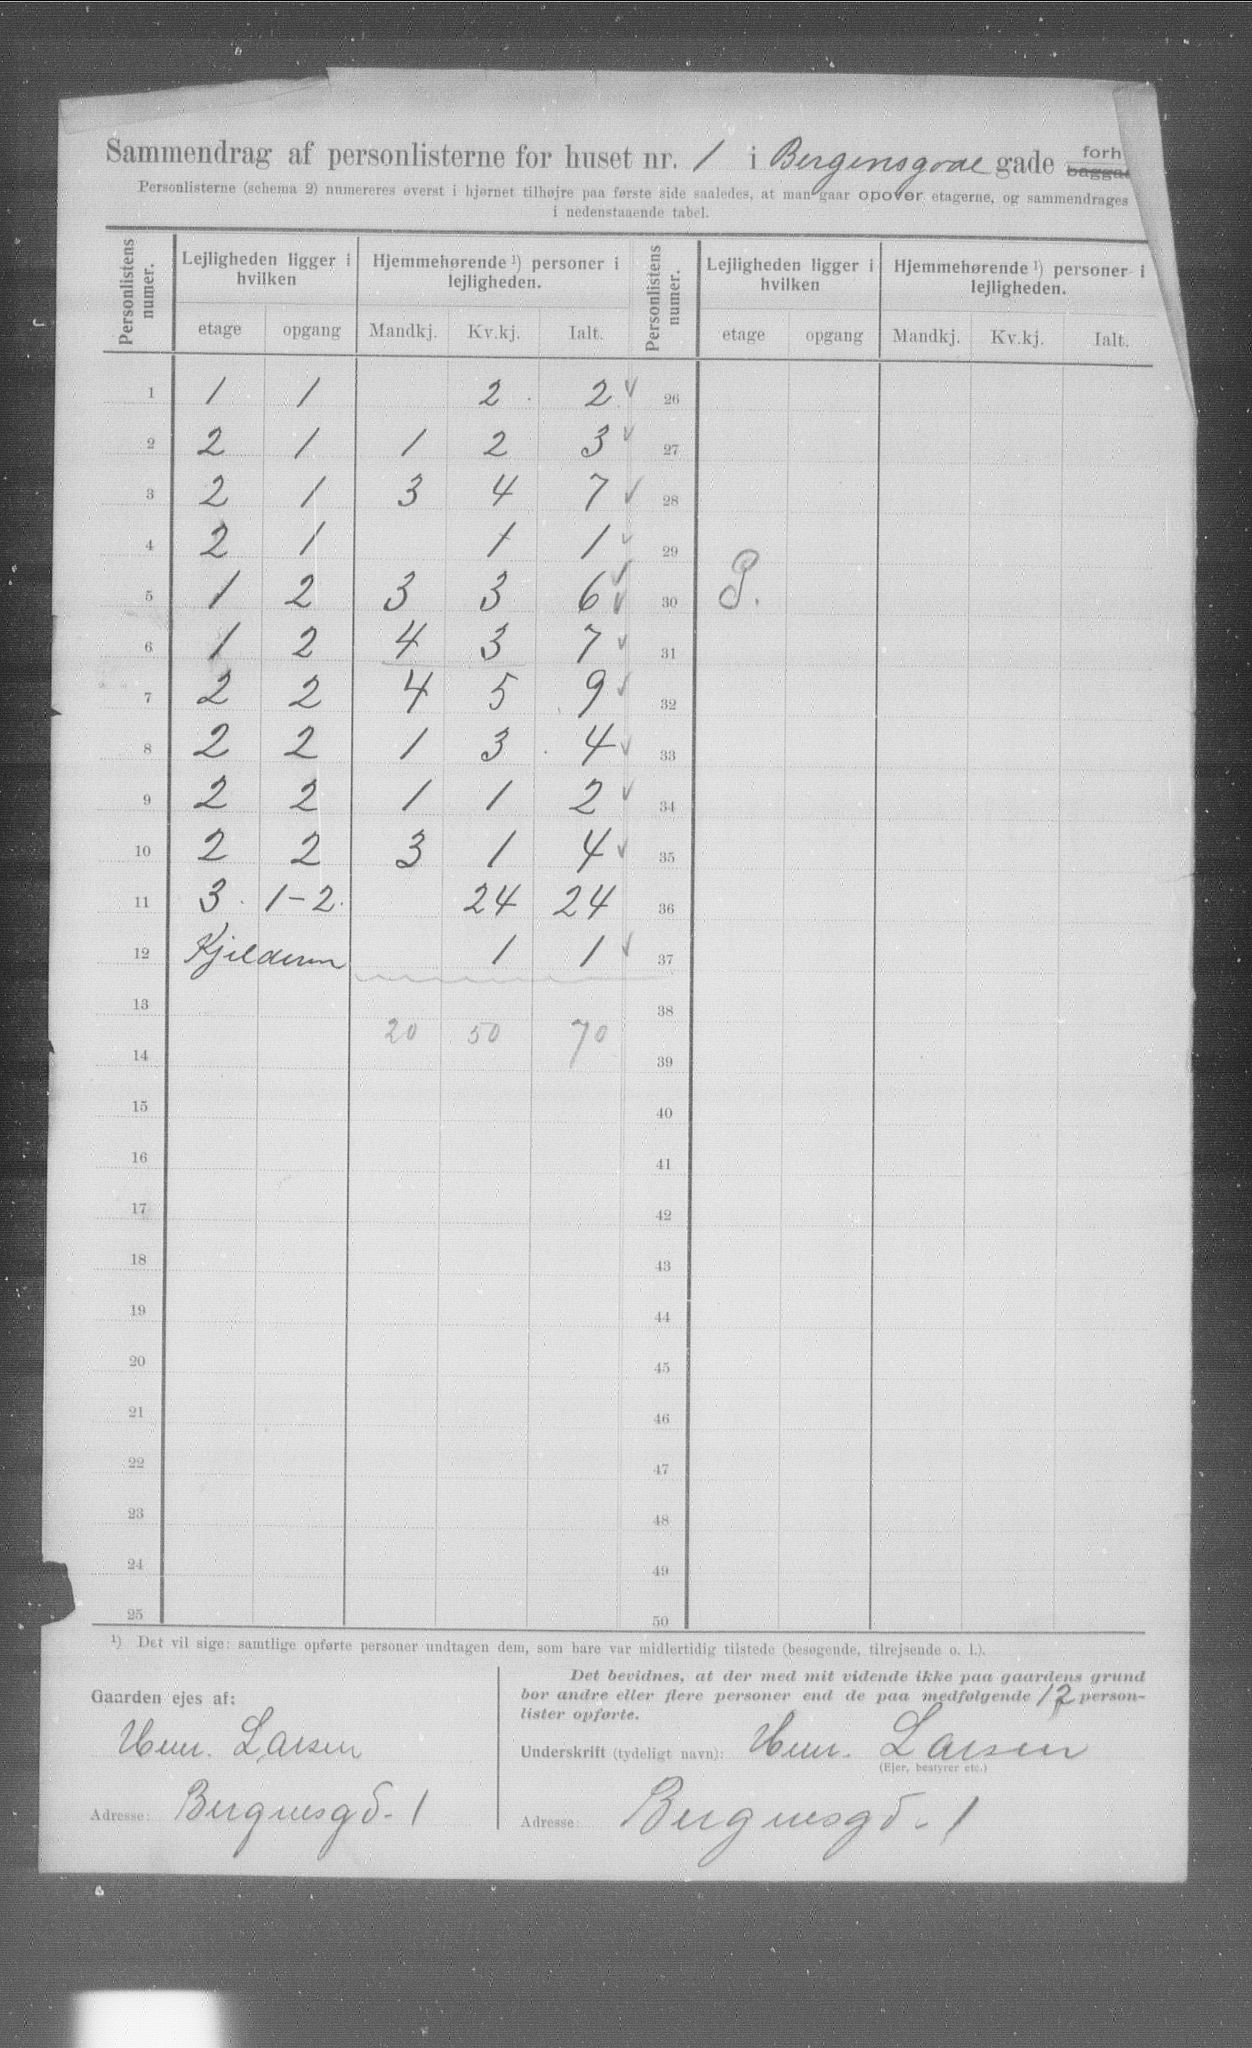 Sammendrag af personlisterne for huset nr. 1 i Bergensgade gade forh
baggaa
Personlisterne (schema 2) numereres øverst i hjørnet tilhøjre paa første side saaledes, at man gaar opover etagerne, og sammendrages
i nedenstaaende tabel.
Personlistens numer. Lejligheden ligger i hvilken Hjemmehørende ¹) personer i lejligheden. Personlistens numer. Lejligheden ligger i hvilken Hjemmehørende ¹) personer i lejligheden.
etage opgang Mandkj. Kv.kj. Ialt. etage opgang Mandkj. Kv.kj. Ialt.
1 1 1 2 2 26
2 2 1 1 2 3 27
3 2 1 3 4 7 28
4 2 1 1 1 29
5 1 2 3 3 6 30
6 1 2 4 3 7 31
7 2 2 4 5 9 32
8 2 2 1 3 4 33
9 2 2 1 1 2 34
10 2 2 3 1 4 35
11 3. 1-2. 24 24 36
12 Kjelderen 1 1 37
13 20 50 70 38
14 39
15 40
16 41
17 42
18 43
19 44
20 45
21 46
22 47
23 48
24 49
25 50
¹) Det vil sige: samtlige opførte personer undtagen dem, som bare var midlertidig tilstede (besøgende, tilrejsende o. l.).
Gaarden ejes af:
Larsen
Adresse: Bergensgd. 1
Det bevidnes, at der med mit vidende ikke paa gaardens grund
bor andre eller flere personer end de paa medfølgende 12 person-
lister opførte.
Underskrift (tydeligt navn): Larsen
(Ejer, bestyrer etc.)
Adresse: Bergensgd. 1